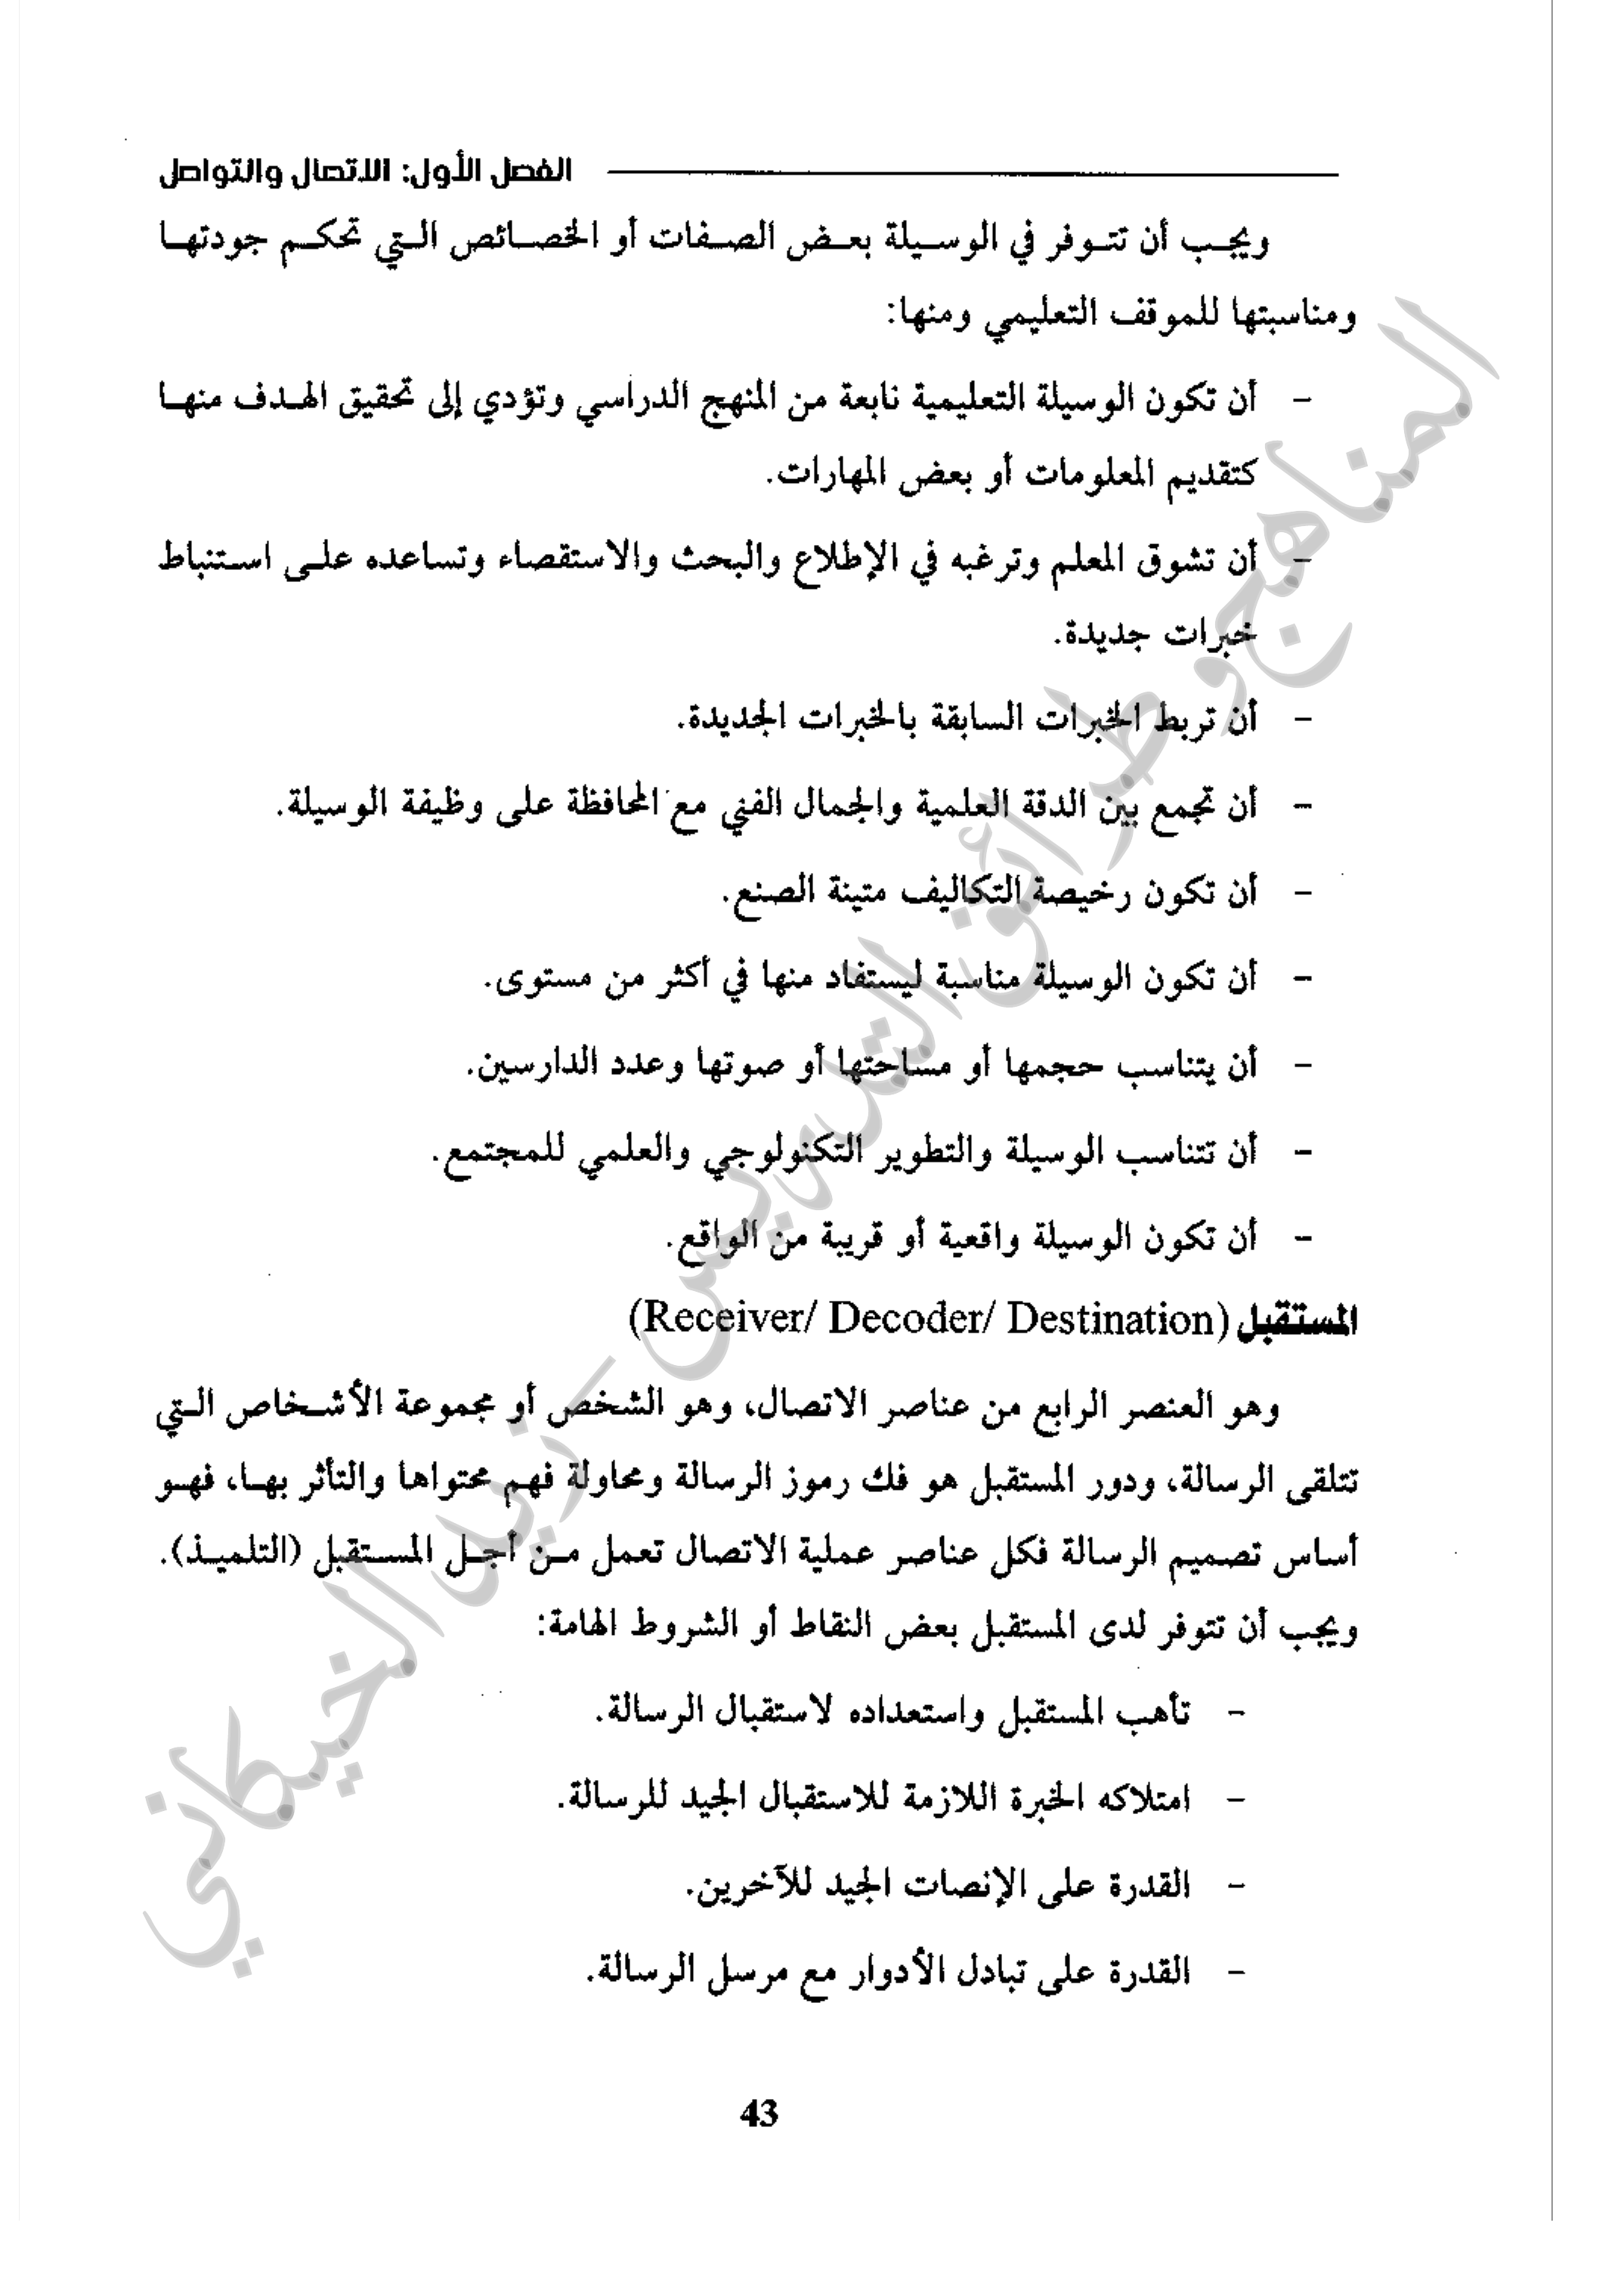 الفصل الأول: الاتصال والتواصل
ويجب أن تتوفر في الوسيلة بعض الصفات أو الخصائص التي تحكم جودتها
ومناسبتها للموقف التعليمي ومنها:
- أن تكون الوسيلة التعليمية نابعة من المنهج الدراسي وتؤدي إلى تحقيق الهدف منها
كتقديم المعلومات أو بعض المهارات.
- أن تشوق المعلم وترغبه في الإطلاع والبحث والاستقصاء وتساعده على استنباط
خبرات جديدة.
- أن تربط الخبرات السابقة بالخبرات الجديدة.
- أن تجمع بين الدقة العلمية والجمال الفني مع المحافظة على وظيفة الوسيلة.
- أن تكون رخيصة التكاليف متينة الصنع.
- أن تكون الوسيلة مناسبة ليستفاد منها في أكثر من مستوى.
- أن يتناسب حجمها أو مساحتها أو صوتها وعدد الدارسين.
- أن تتناسب الوسيلة والتطوير التكنولوجي والعلمي للمجتمع.
- أن تكون الوسيلة واقعية أو قريبة من الواقع.
المستقبل (Receiver/ Decoder/ Destination)
وهو العنصر الرابع من عناصر الاتصال، وهو الشخص أو مجموعة الأشخاص التي
تتلقى الرسالة، ودور المستقبل هو فك رموز الرسالة ومحاولة فهم محتواها والتأثر بها، فهو
أساس تصميم الرسالة فكل عناصر عملية الاتصال تعمل من أجل المستقبل (التلميذ).
ويجب أن تتوفر لدى المستقبل بعض النقاط أو الشروط الهامة:
- تأهب المستقبل واستعداده لاستقبال الرسالة.
- امتلاكه الخبرة اللازمة للاستقبال الجيد للرسالة.
- القدرة على الإنصات الجيد للآخرين.
- القدرة على تبادل الأدوار مع مرسل الرسالة.
43
المناهج وطرائق التدريس - زيد الخيكاني